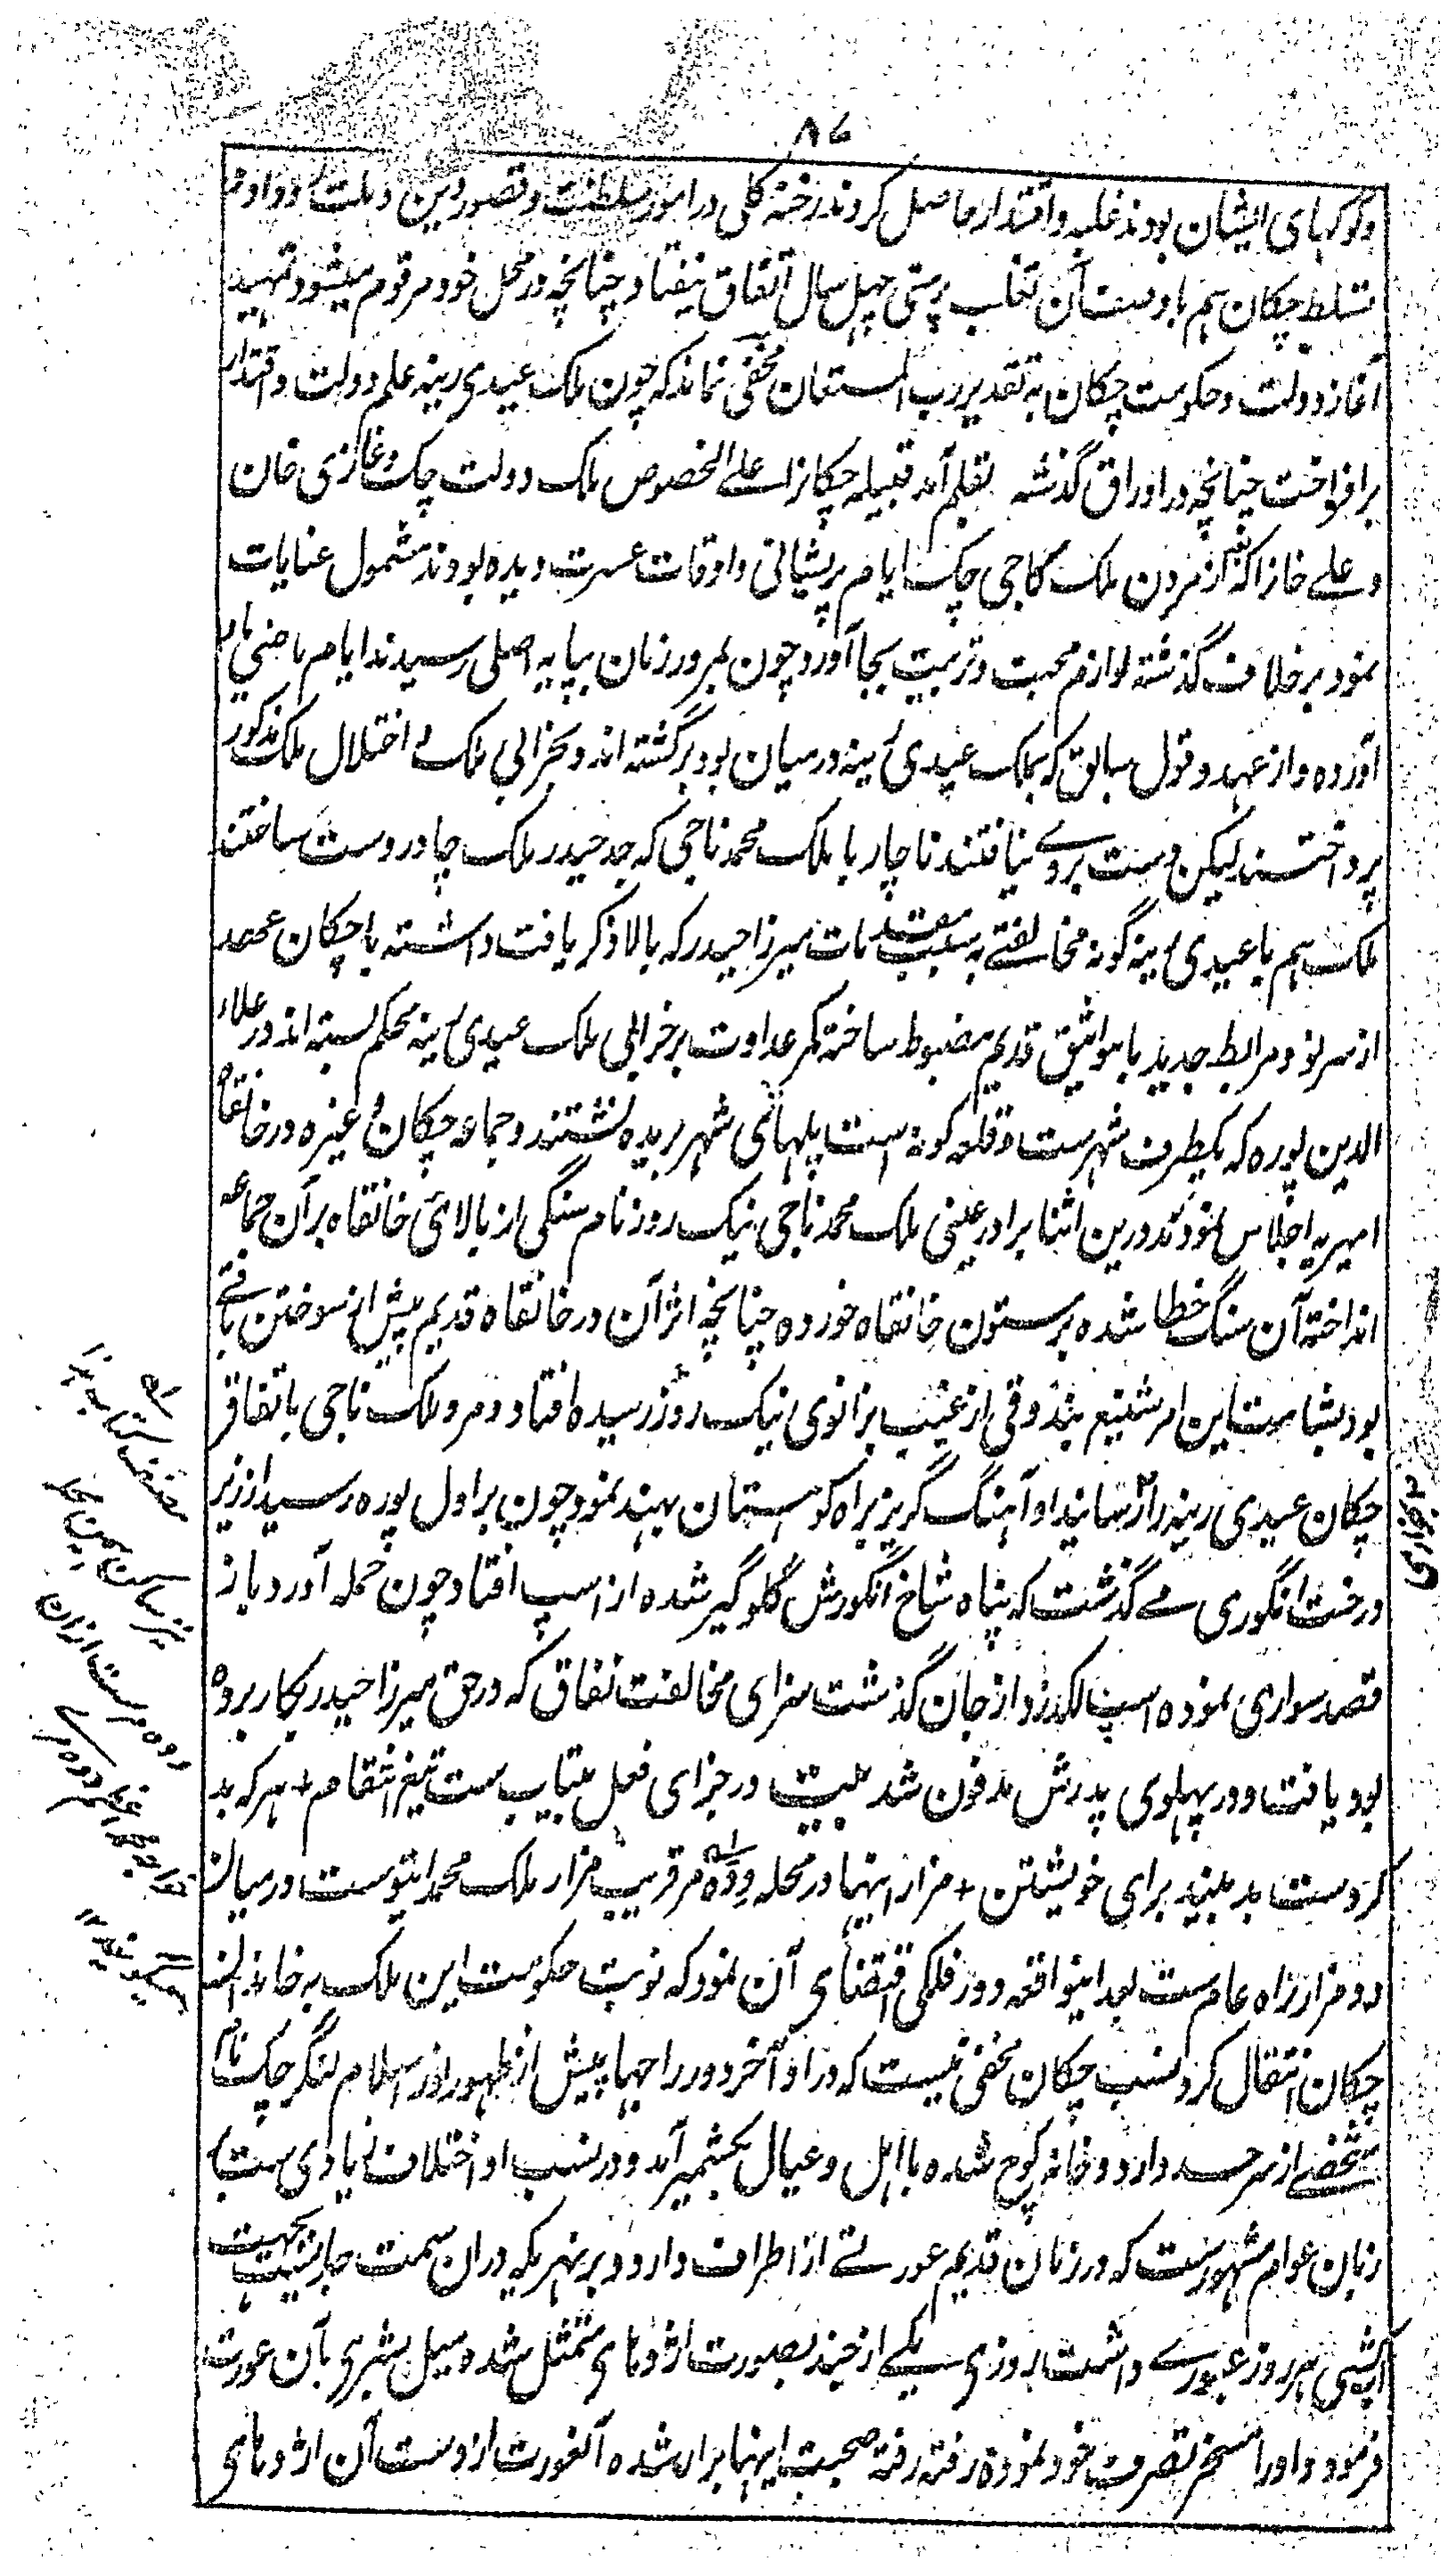 ۸۶
وکوکهای ایشان بودند غلبه و اقتدار حاصل کردند رخنهٔ کلی در امور سلطنت و قصور دین و ملت رو داد و
تسلط چکان هم باوصف آن تغلب پرستی چهل سال اتفاق نیفتاد چنانچه در محل خود مرقوم میشود تمهید
آغاز دولت و حکومت چکان به تقدیر رب المستعان مخفی نماند که چون ملک عیدی رینه علم دولت و اقتدار
برافراخت چنانچه در اوراق گذشته بقلم آمد قبیله چکانرا علی الخصوص ملک دولت چک و غازی خان
و علے خانرا که از مردن ملک کاجی چک ایام پریشانی و اوقات عسرت دیده بودند مشمول عنایات
نمود بر خلاف گذشته لوازم محبت و تربیت بجا آورد چون بمرور زمان بپایه اصلی رسیدند ایام ماضی یاد
آورده و از عهد و قول سابق که بملک عیدی رینه درمیان بود برگشته اند و بخرابی ملک و اختلال ملک مذکور
پرداختند لیکن دست بروے نیافتند ناچار با ملک محمد ناجی که جد حیدر ملک چادر وست ساختند
ملک هم با عیدی رینه گونه مخالفتے به سبب مقدمات میرزا حیدر که بالا ذکر یافت داشته با چکان عهد
از سر نو و مرابط جدید با مواثیق قدیم مضبوط ساخته کمر عداوت بر خرابی ملک عیدی رینه محکم بسته اند در علاء
الدین پوره که یکطرف شهرست و قلعه گونه است پلهائی شهر بریده نشستند و جماعه چکان وغیره در خانقاه
امیریه اجلاس نمودند درین اثنا برادر عینی ملک محمد ناجی نیک روز نام سنگی از بالائی خانقاه بر آن جماعه
انداخته آن سنگ خطا شده بر ستون خانقاه خورده چنانچه اثر آن در خانقاه قدیم پیش از سوختن باقے
بود بشامت این امر شنیع بندوقی از غیب بزانوی نیک روز رسیده افتاد و مرد ملک ناجی باتفاق
چکان عیدی رینه را ترسانید او آهنگ گریز براه کوهستان هند نمود چون براول پوره رسید از زیر
درخت انگوری مے گذشت که پناه شاخ انگورش گلوگیر شده از اسپ افتاد چون حمله آورد باز
قصد سواری نموده اسپ لکد زد از جان گذشت سزای مخالفت نفاق که در حق میرزا حیدر بکار برده
بود یافت و در پهلوی پدرش مدفون شد بیت در جزای فعل بیتاب ست تیغ انتقام + هر که بد
کردست بد بیند برای خویشتن + مزار اینها در محله وده مر قریب مزار ملک محمد ایتوست در میان
دو مزار راه عام ست بعد اینواقعه دور فلکی اقتضای آن نمود که نوبت حکومت این ملک به خاندان
چکان انتقال کرد نسب چکان مخفی نیست که در اواخر دور راجها پیش از ظهور نور اسلام لنگر چک نام
شخصے از سرحد دارد و خانه کوچ شده با اهل و عیال بکشمیر آمد و در نسب او اختلاف زیادی ست
زبان عوام مشهورست که در زمان قدیم عورتے از اطراف دارد و بر نهریکه دران سمت جاریست بجهت
آبکشی هر روز عبورے داشت روزی یکے از جند بصورت اژدهای متمثل شده میل بشری بآن عورت
فرمود و اورا مسخر تصرف خود نموده رفته رفته صحبت اینها برار شده آنعورت از دست آن اژدهای
مصنف کتاب هذا
نیز ساکن همین محله